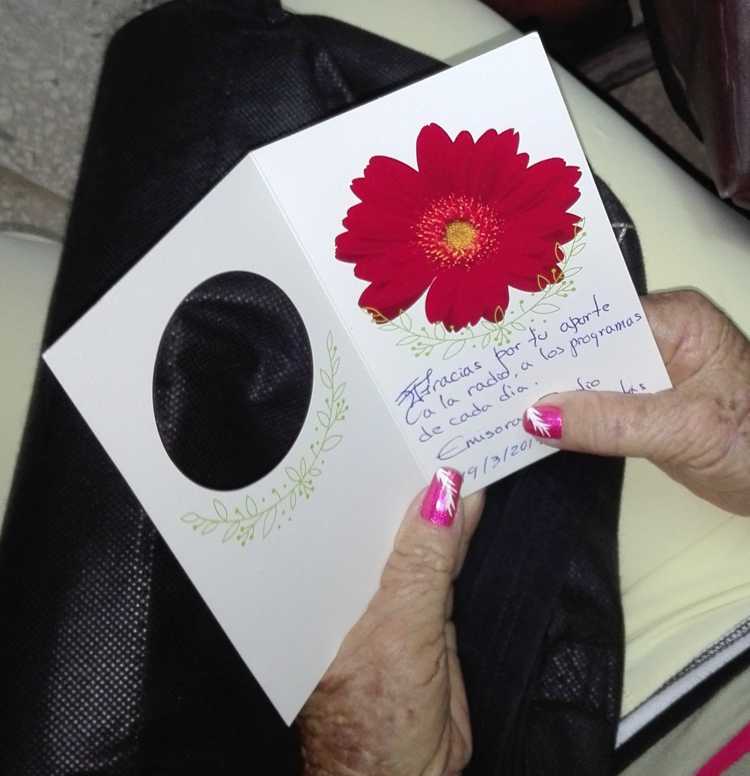 Gracias por tu aporte
a la radio, a los programas
de cada día.
Emisora